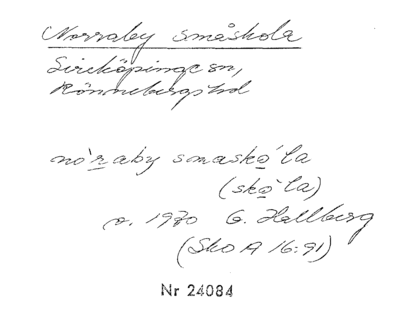 Norraby småskola
Sireköpinge sn,
Rönnebergs hd
nò̀raby smaskó̀la
(skó̀la)
v. 1970 G. Hallberg
(Sko A 16:91)
Nr 24084